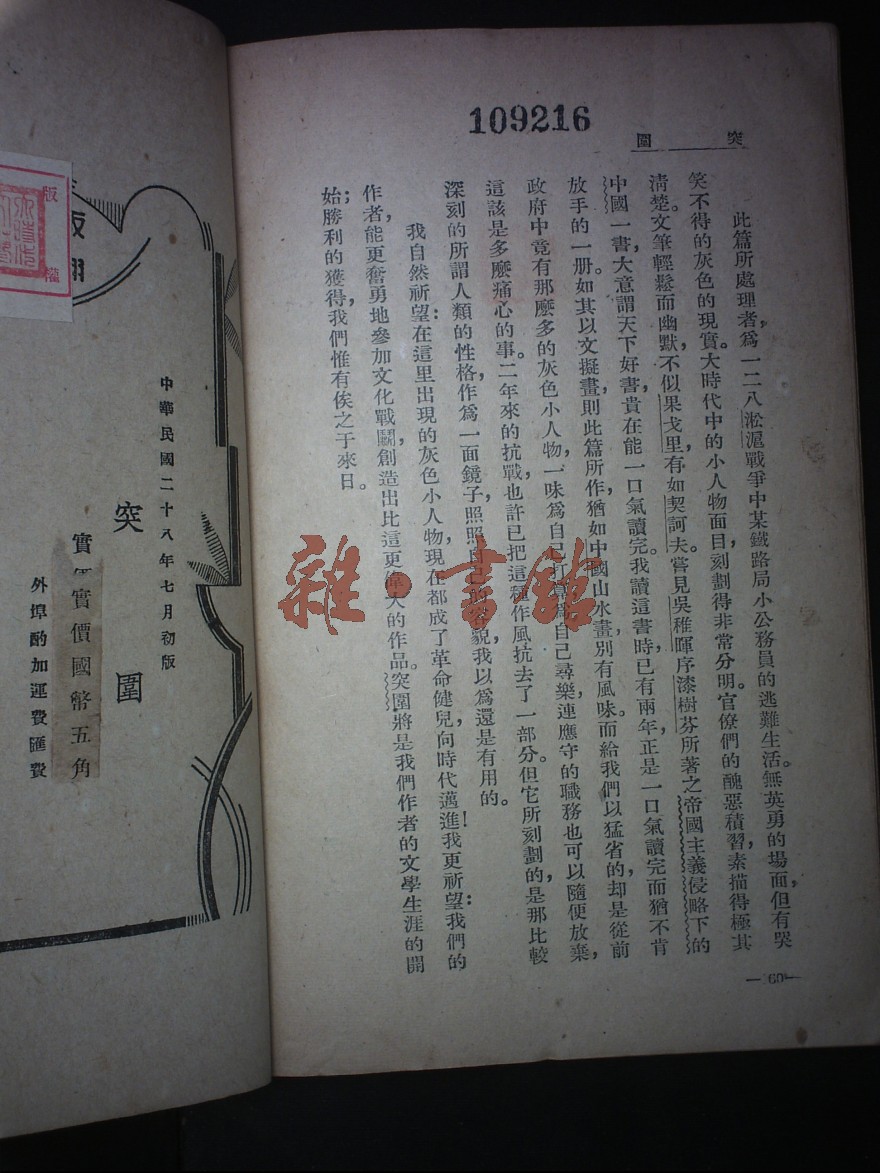 109216
突圍
此篇所處理者，爲一二八淞滬戰爭中某鐵路局小公務員的逃難生活。無英勇的場面，但有哭
笑不得的灰色的現實。大時代中的小人物面目，刻劃得非常分明。官僚們的醜惡積習，素描得極其
清楚。文筆輕鬆而幽默，不似果戈里，有如契訶夫。嘗見吳稚暉序漆樹芬所著之帝國主義侵略下的
中國一書，大意謂天下好書，貴在能一口氣讀完。我讀這書時已有兩年，正是一口氣讀完而猶不肯
放手的一册。如其以文擬畫，則此篇所作，猶如中國山水畫，別有風味。而給我們以猛省的，却是從前
政府中竟有那麼多的灰色小人物，一味爲自己打算，爲自己尋樂，連應守的職務也可以隨便放棄，
這該是多麼痛心的事。二年來的抗戰，也許已把這種作風抗去了一部分。但它所刻劃的是那比較
深刻的所謂人類的性格，作爲一面鏡子，照照自己的容貌，我以爲還是有用的。
我自然祈望：在這里出現的灰色小人物，現在都成了革命健兒，向時代邁進！我更祈望：我們的
作者，能更奮勇地參加文化戰鬭，創造出比這更偉大的作品。突圍將是我們作者的文學生涯的開
始；勝利的獲得，我們惟有俟之于來日。
—60—
版權
中華民國二十八年七月初版
突圍
實價國幣五角
外埠酌加運費匯費
雜·書館